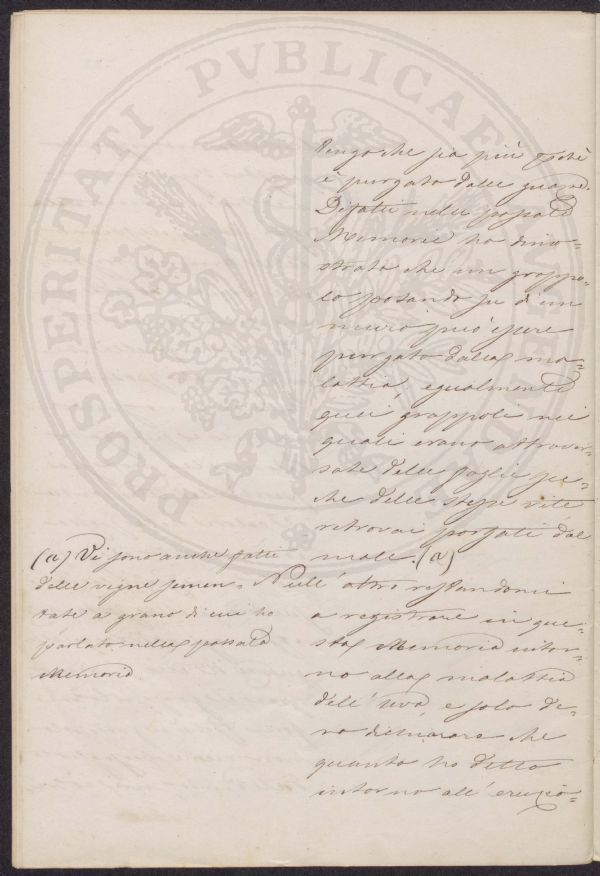 PROSPERITATI PVBLICAE AVGENDAE
tengo che sia più
è purgato dalle
Difatti nelle passate
Memorie ho dimo=
strato che un grappo=
lo posando su d'un
muro può essere
purgato dalla ma=
lattia, egualmente
quei grappoli nei
quali erano attraver=
sate delle foglie sec=
che delle stesse viti
ritrovai portati dal
male. (a)
Null' altro restandomi
a registrare in que=
sta Memoria intor=
no alla malattia
dell' Uva, e solo de=
vo dichiarare che
quanto ho detto
intorno all' eruzio=
(a) Vi sono anche fatti
delle vigne semen=
tate a grano di cui ho
parlato nella passata
Memoria